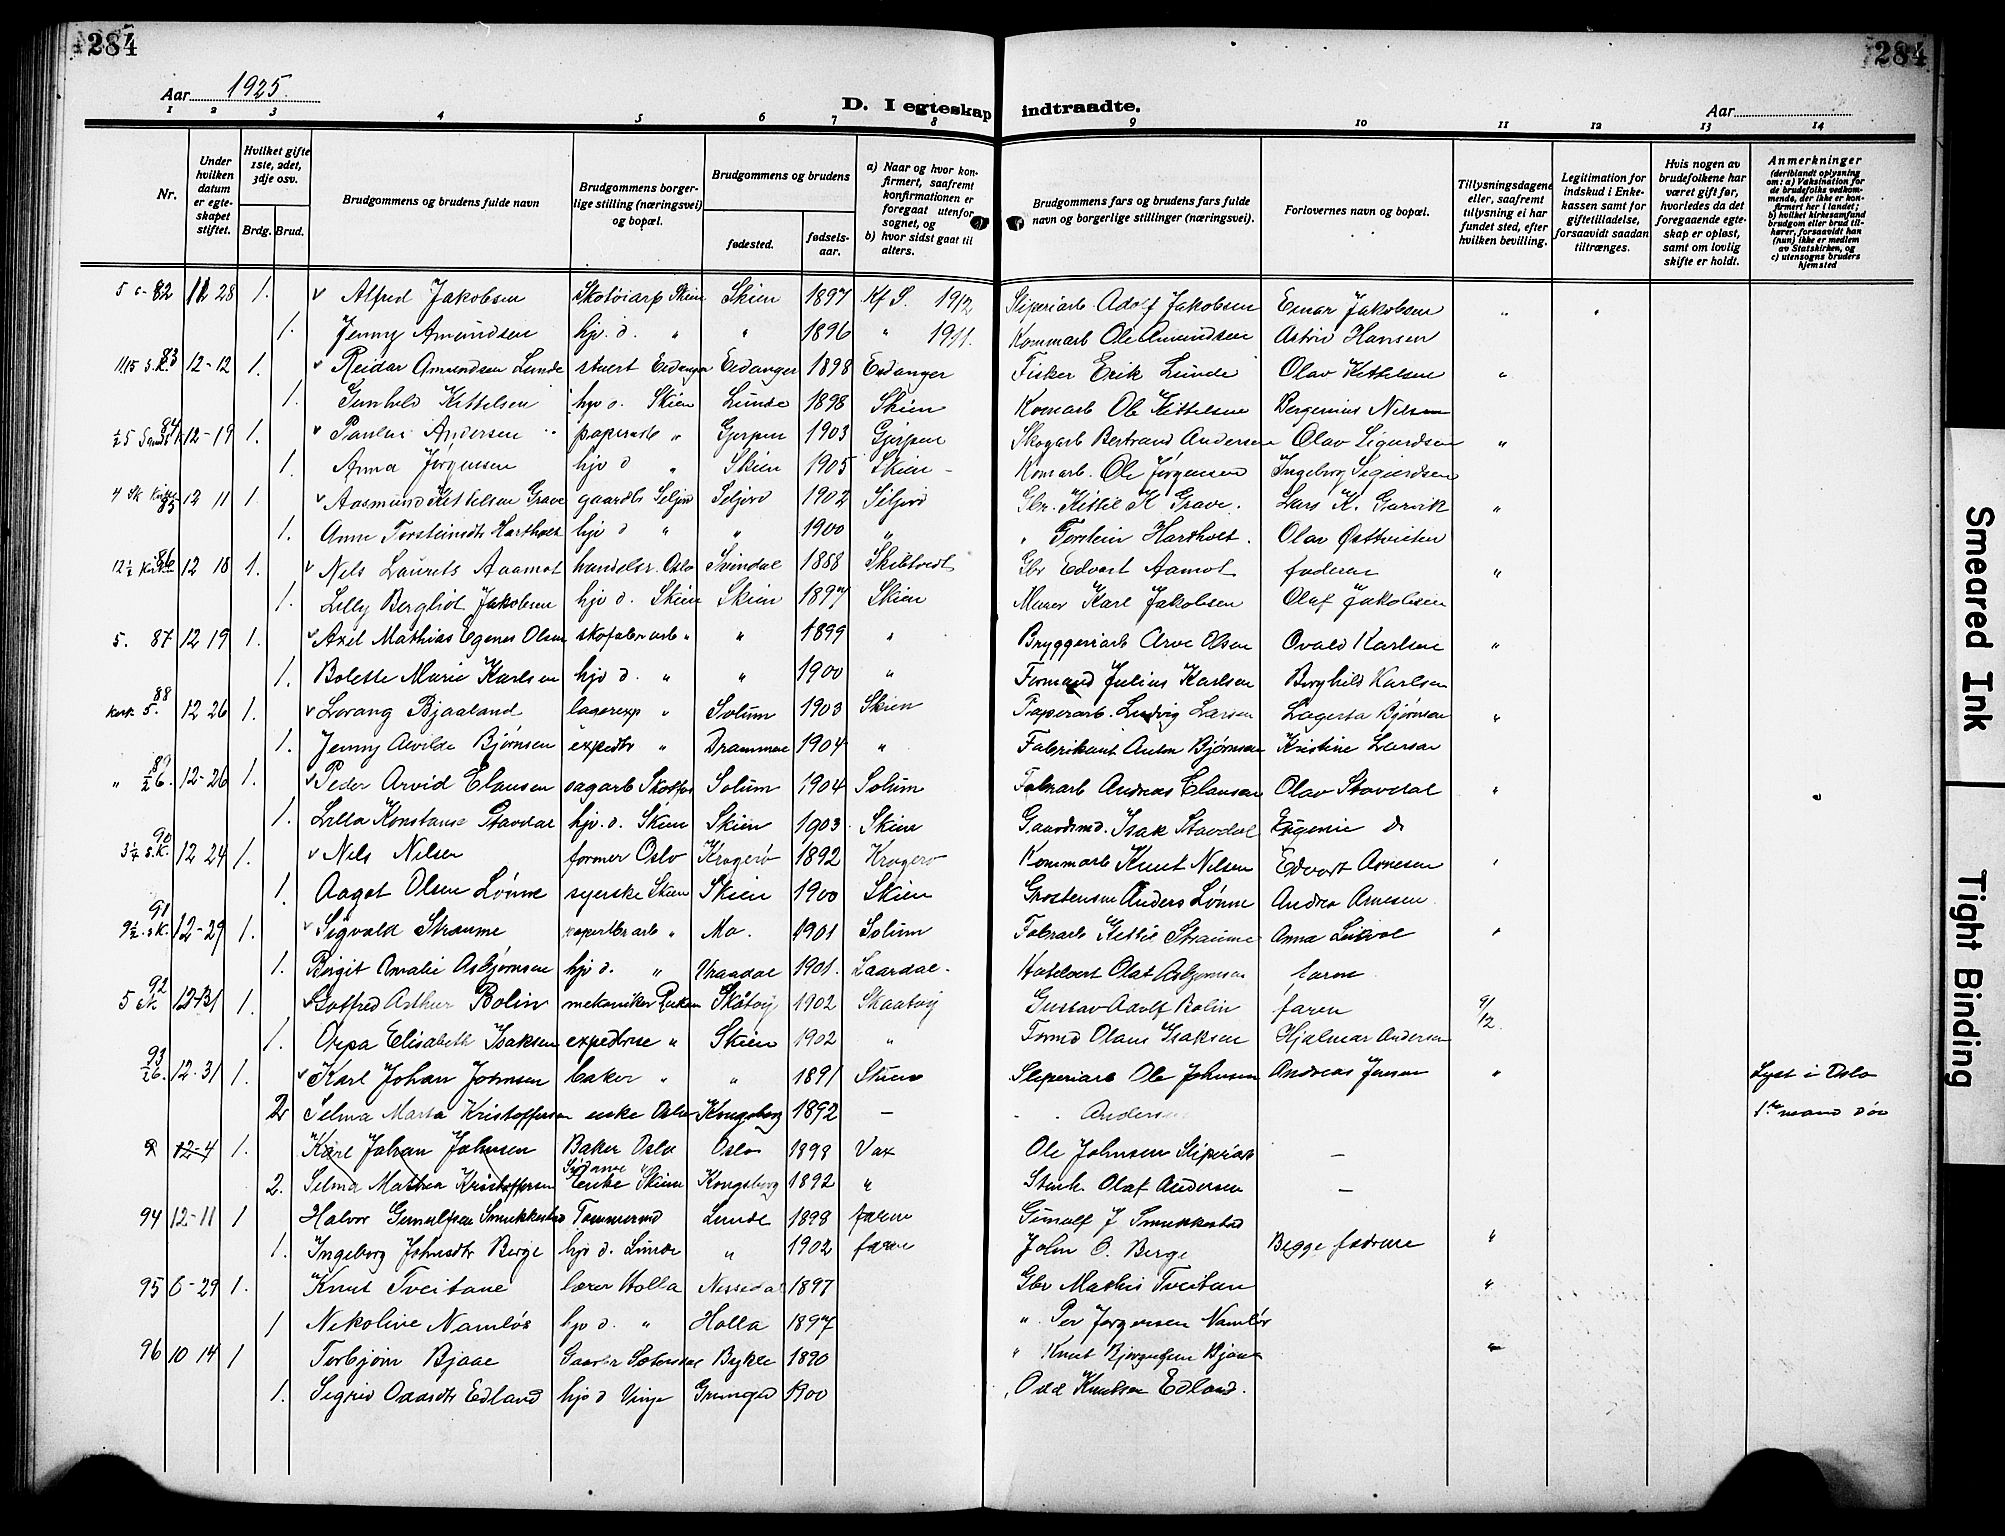 284
284
Aar 1925.
D. I egteskap indtraadte.
Aar
1 2 3 4 5 6 7 8 9 10 11 12 13 14
Nr.
Under hvilken datum er egteskapet stiftet.
Hvilket gifte 1ste, 2det, 3dje osv.
Brdg. Brud.
Brudgommens og brudens fulde navn
Brudgommens borgerlige stilling (næringsvei) og bopæl.
Brudgommens og brudens
fødested.
fødselsaar.
a) Naar og hvor konfirmert, saafremt konfirmationen er foregaat utenfor sognet, og
b) hvor sidst gaat til alters.
Brudgommens fars og brudens fars fulde navn og borgerlige stillinger (næringsvei).
Forlovernes navn og bopæl.
Tillysningsdagene eller, saafremt tillysning ei har fundet sted, efter hvilken bevilling.
Legitimation for indskud i Enkekassen samt for giftetilladelse, forsaavidt saadan tiltrænges.
Hvis nogen av brudefolkene har været gift før, hvorledes da det foregaaende egteskap er opløst, samt om lovlig skifte er holdt.
Anmerkninger (deriblandt oplysning om: a) Vaksination for de brudefolks vedkommende, der ikke er konfirmert her i landet; b) hvilket kirkesamfund brudgom eller brud tilhører, forsaavidt han (hun) ikke er medlem av Statskirken, og c) utensogns bruders hjemsted
82 11 28 1. Alfred Jakobsen Skotøiarb Skien Skien 1897 Kf S. 1912 Sliperiarb. Adolf Jakobsen Einar Jakobsen "
1. Jenny Amundsen hjv. d. " " 1896 " 1911. Kommarb Ole Amundsen Astrid Hansen
83 12-12 1. Reidar Amundsen Lunde stuert Eidanger Eidanger 1898 Eidanger Fisker Erik Lunde Olav Kittelsen "
1. Gunhild Kittelsen hjv d. Skien Lunde 1898 Skien Komarb Ole Kittelsen Bergenius Nilsen
84 12-19 1. Paulus Andersen papirarb " Gjerpen 1903 Gjerpen Skogarb Bertrand Andersen Olav Sigurdsen "
1. Anna Jørgensen hjv d " Skien 1905 Skien Komarb. Ole Jørgensen Ingeborg Sigurdsen
85 12 11 1. Aasmund Kittelsen Grave gaardbr Seljord Seljord 1902 Seljord Gbr. Kittil K Grave. Lars K. Garvik "
1. Anne Torsteinsdtr Hartholt hjv d " " 1900 " " Torstein Hartholt. Olav Østtveiten
86 12 18 1. Nils Laurits Aamot handelsr. Oslo Svindal 1888 Skibtvedt Gbr Edvart Aamot faderen "
1. Lilly Bergliot Jakobsen hjv d. Skien Skien 1897 Skien Murer Karl Jakobsen Olaf Jakobsen
5. 87 12 19 1. Axel Mathias Egenes Olsen skofabrarb " " 1899 " Bryggeriarb Arve Olsen Ovald Karlsen "
1. Bolette Marie Karlsen hjv d. " " 1900 " Formand Julius Karlsen Borghild Karlsen
88 12 26 1. Lorang Bjaaland lagerexp " Solum 1903 Skien Papirarb. Ludvig Larsen Lagerta Bjørnsen "
1. Jenny Alvilde Bjørnsen expedtr " Drammen 1904 " Fabrikant Anton Bjørnsen Kristine Larsen
89 12-26 1. Peder Arvid Clausen sagarb Skotfos Solum 1904 Solum Fabrarb Andreas Clausen Olav Stavdal "
1. Lilla Konstanse Stavdal hjv. d. Skien Skien 1903 Skien Gaardsmd. Isak Stavdal Eugenie do
90 12 24 1. Nils Nilsen former Oslo Kragerø 1892 Kragerø Kommarb Knut Nilsen Edvart Arnesen "
1. Aagot Olsen Lønne syerske Skien Skien 1900 Skien Anders Lønne Andrea Arnesen
91 12-29 1. Sigvald Straume papirfbr arb " Mo. 1901 Solum Fabrarb Kittil Straume Anna "
1. Birgit Amalie Asbjørnsen hjv d. " Vraadal 1901. Laardal Olaf Asbjørnsen faren
92 12-31 1. Gotfred Arthur Bolin mekaniker Skåtøy 1902 Skaatøy Gustav Adolf Bolin faren 9/12
1. Orpa Elisabeth Isaksen expedtrise " Skien 1902 " Formd Olaus Isaksen Hjalmar Andersen
93 12-31 1. Karl Johan Johnsen baker " " 1891 Skien Sliperiarb Ole Johnsen Andreas Jensen " Lyst i Oslo
2. Selma Marta Kristoffersen enke Oslo Kongsberg 1892 – Andersen 1ste mand død
12-4 1. Karl Johan Johnsen Baker Oslo Oslo 1898 Vax Ole Johnsen Sliperiarb –
2. Selma Mathea Kristoffersen enke Skien Kongsberg 1892 " Olaf Andersen –
94 12-11 1 Halvor Gunulfsen Smukkestad Tømmermd Lunde 1898 faren Gunulf J Smukkestad
1. Ingeborg Johnsdtr Berge hjv d. Lunde " 1902 faren John O. Berge Begge fædrene "
95 6-29 1. Knut Tveitane lærer Holla Nissedal 1897 Gbr Mathis Tveitan "
1 Nikoline Namløs hjv d. " Holla 1897 " Per Jørgensen Namløs
96 10 14 1 Torbjørn Bjaae Gaardbr Setesdal Bykle 1890 " Knut "
1. Sigrid Oddsdtr Edland hjv d Vinje Grungedal 1900 Odd Knutsen Edland.
Smeared Ink
Tight Binding